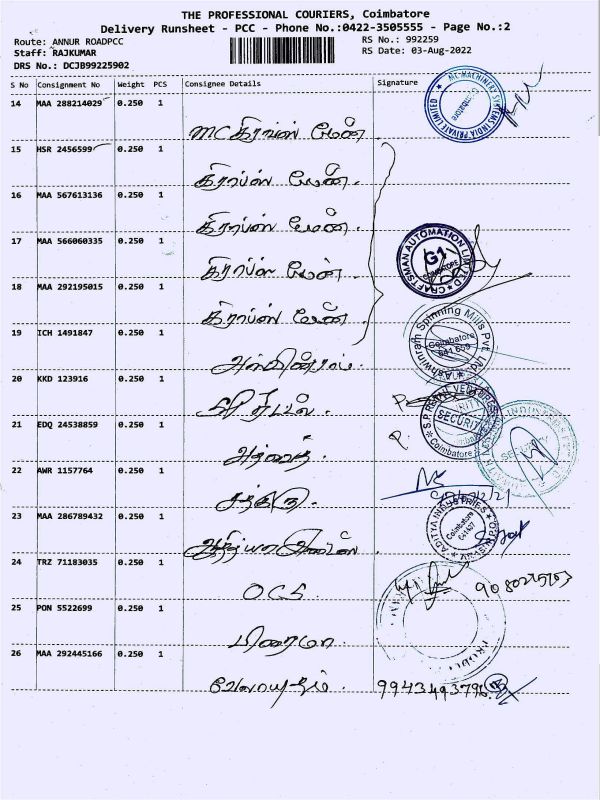 THE PROFESSIONAL COURIERS, Coimbatore
Delivery Runsheet - PCC - Phone No.:0422-3505555 - Page No.:2
Route: ANNUR ROADPCC RS No.: 992259
Staff: RAJKUMAR RS Date: 03-Aug-2022
DRS No.: DCJB99225902
S No Consignment No Weight PCS Consignee Details Signature
14 MAA 288214029 0.250 1
MC கிராப்ஸ் மேன்
15 HSR 2456599 0.250 1
கிராப்ஸ் மேன்.
16 MAA 567613136 0.250 1
கிராப்ஸ் மேன்.
17 MAA 566060335 0.250 1
கிராப்ஸ் மேன்.
18 MAA 292195015 0.250 1
கிராப்ஸ் மேன்.
19 ICH 1491847 0.250 1
அஸ்வின்ராம்.
20 KKD 123916 0.250 1
21 EDQ 24538859 0.250 1
22 AWR 1157764 0.250 1
23 MAA 286789432 0.250 1
24 TRZ 71183035 0.250 1
OCS
25 PON 5522699 0.250 1
பிரைமா.
26 MAA 292445166 0.250 1
வேலாயுதம். 9943493796
MACHINERY SYSTEMS INDIA PRIVATE LIMITED
CRAFTSMAN AUTOMATION LIMITED
G1
COIMBATORE
Ashwinram Spinning Mills Pvt. Ltd
Coimbatore
641 659
SECURITY
Coimbatore
ADITYA INDUSTRIES
Coimbatore